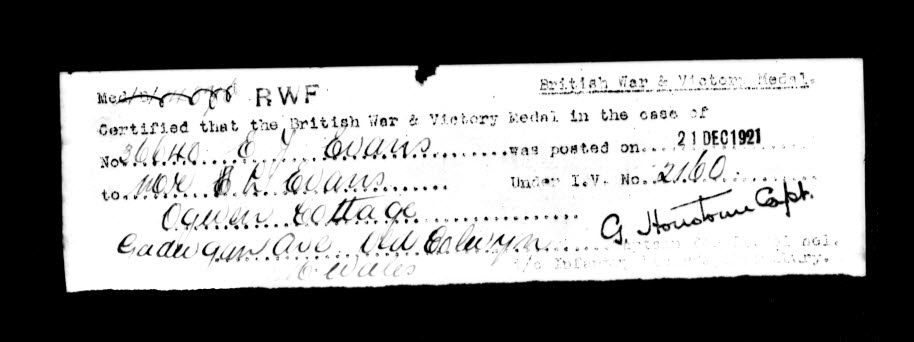 British War & Victory Medal.
Med RWF
Certified that the British War & Victory Medal in the case of
No 36640 E J Evans was posted on 21 DEC 1921
to Evans Under I.V. No. 2160
Ogwen Cottage
Cadwgan Ave Old Colwyn
N Wales
G. Houstoun Capt.